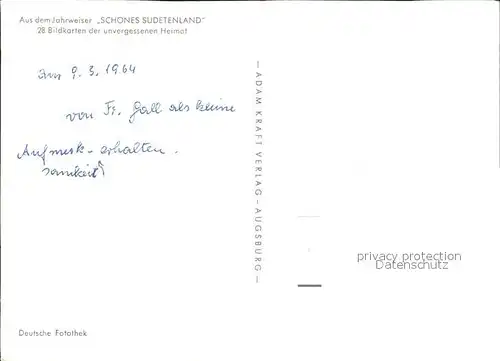 Aus dem Jahrweiser „SCHÖNES SUDETENLAND"
28 Bildkarten der unvergessenen Heimat
am 9. 3. 1964
von Fr. Gall als kleine
Aufmerk- erhalten.
samkeit
ADAM KRAFT VERLAG - AUGSBURG
privacy protection
Datenschutz
Deutsche Fotothek